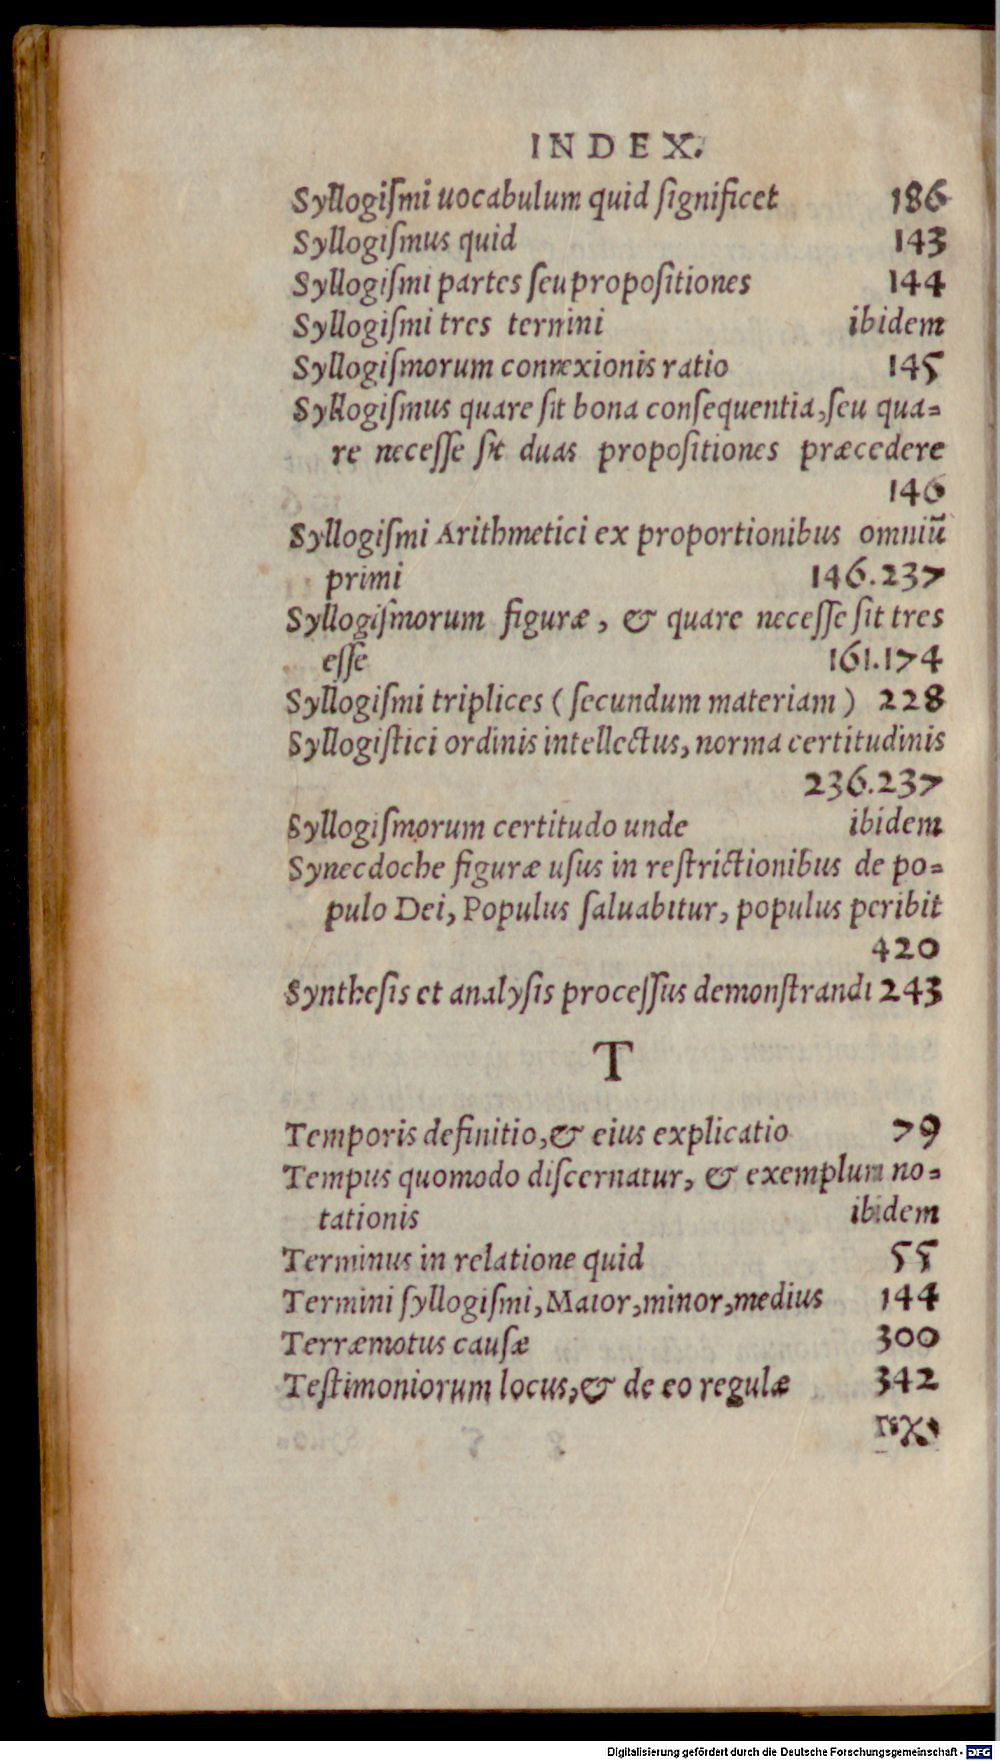 INDEX.
Syllogiſmi uocabulum quid ſignificet 186
Syllogiſmus quid 143
Syllogiſmi partes ſeu propoſitiones 144
Syllogiſmi tres termini ibidem
Syllogiſmorum connexionis ratio 145
Syllogiſmus quare ſit bona conſequentia, ſeu qua=
re neceſſe ſit duas propoſitiones præcedere
146
Syllogiſmi Arithmetici ex proportionibus omniũ
primi 146.237
Syllogiſmorum figuræ, & quare neceſſe ſit tres
eſſe 161.174
Syllogiſmi triplices (ſecundum materiam) 228
Syllogiſtici ordinis intellectus, norma certitudinis
236.237
Syllogiſmorum certitudo unde ibidem
Synecdoche figuræ uſus in reſtrictionibus de po=
pulo Dei, Populus ſaluabitur, populus peribit
420
Syntheſis et analyſis proceſſus demonſtrandi 243
T
Temporis definitio, & eius explicatio 79
Tempus quomodo diſcernatur, & exemplum no=
tationis ibidem
Terminus in relatione quid 55
Termini ſyllogiſmi, Maior, minor, medius 144
Terræmotus cauſæ 300
Teſtimoniorum locus, & de eo regulæ 342
Digitalisierung gefördert durch die Deutsche Forschungsgemeinschaft - DFG